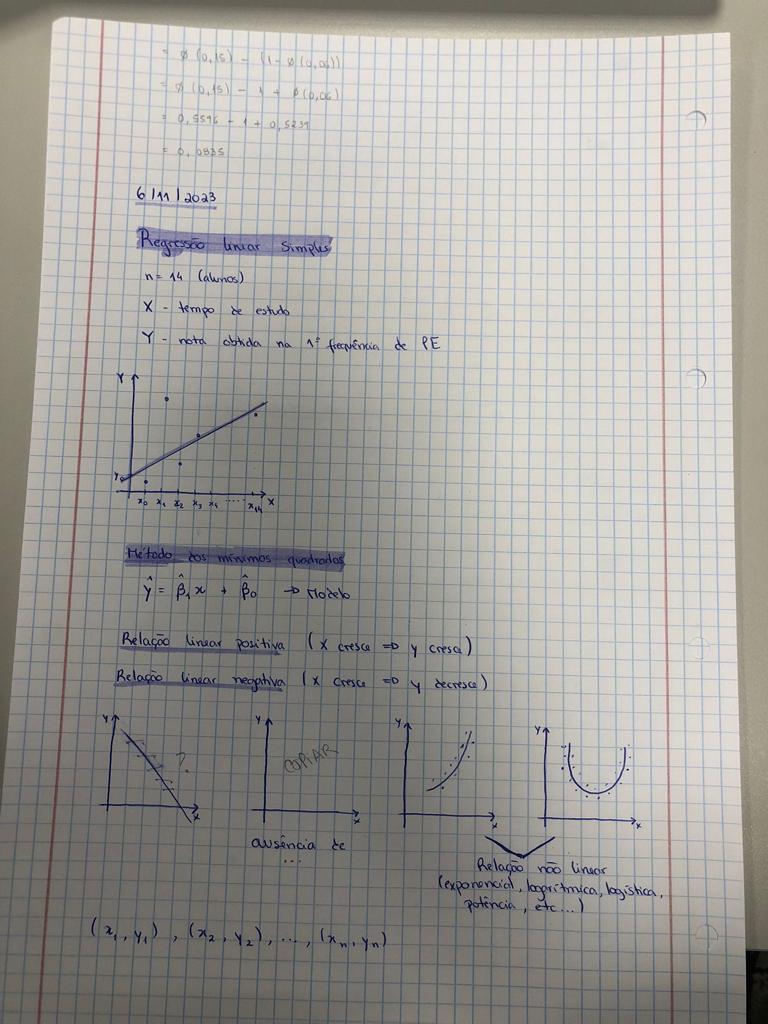 = ø (0,15) - (1 - ø (0,06))
= ø (0,15) - 1 + ø (0,06)
= 0,5596 - 1 + 0,5239
= 0,0835
6/11/2023
Regressão linear simples
n = 14 (alunos)
X - tempo de estudo
Y - nota obtida na 1ª frequência de PE
Y
Y0
x0 x1 x2 x3 x4 ..... x14 X
Método dos mínimos quadrados
ŷ = β̂1 x + β̂0 → Modelo
Relação linear positiva (x cresce => y cresce)
Relação linear negativa (x cresce => y decresce)
Y ? X
Y COPIAR X
Y X
Y X
ausência de
...
Relação não linear
(exponencial, logarítmica, logística,
potência, etc...)
(x1, y1), (x2, y2), ..., (xn, yn)